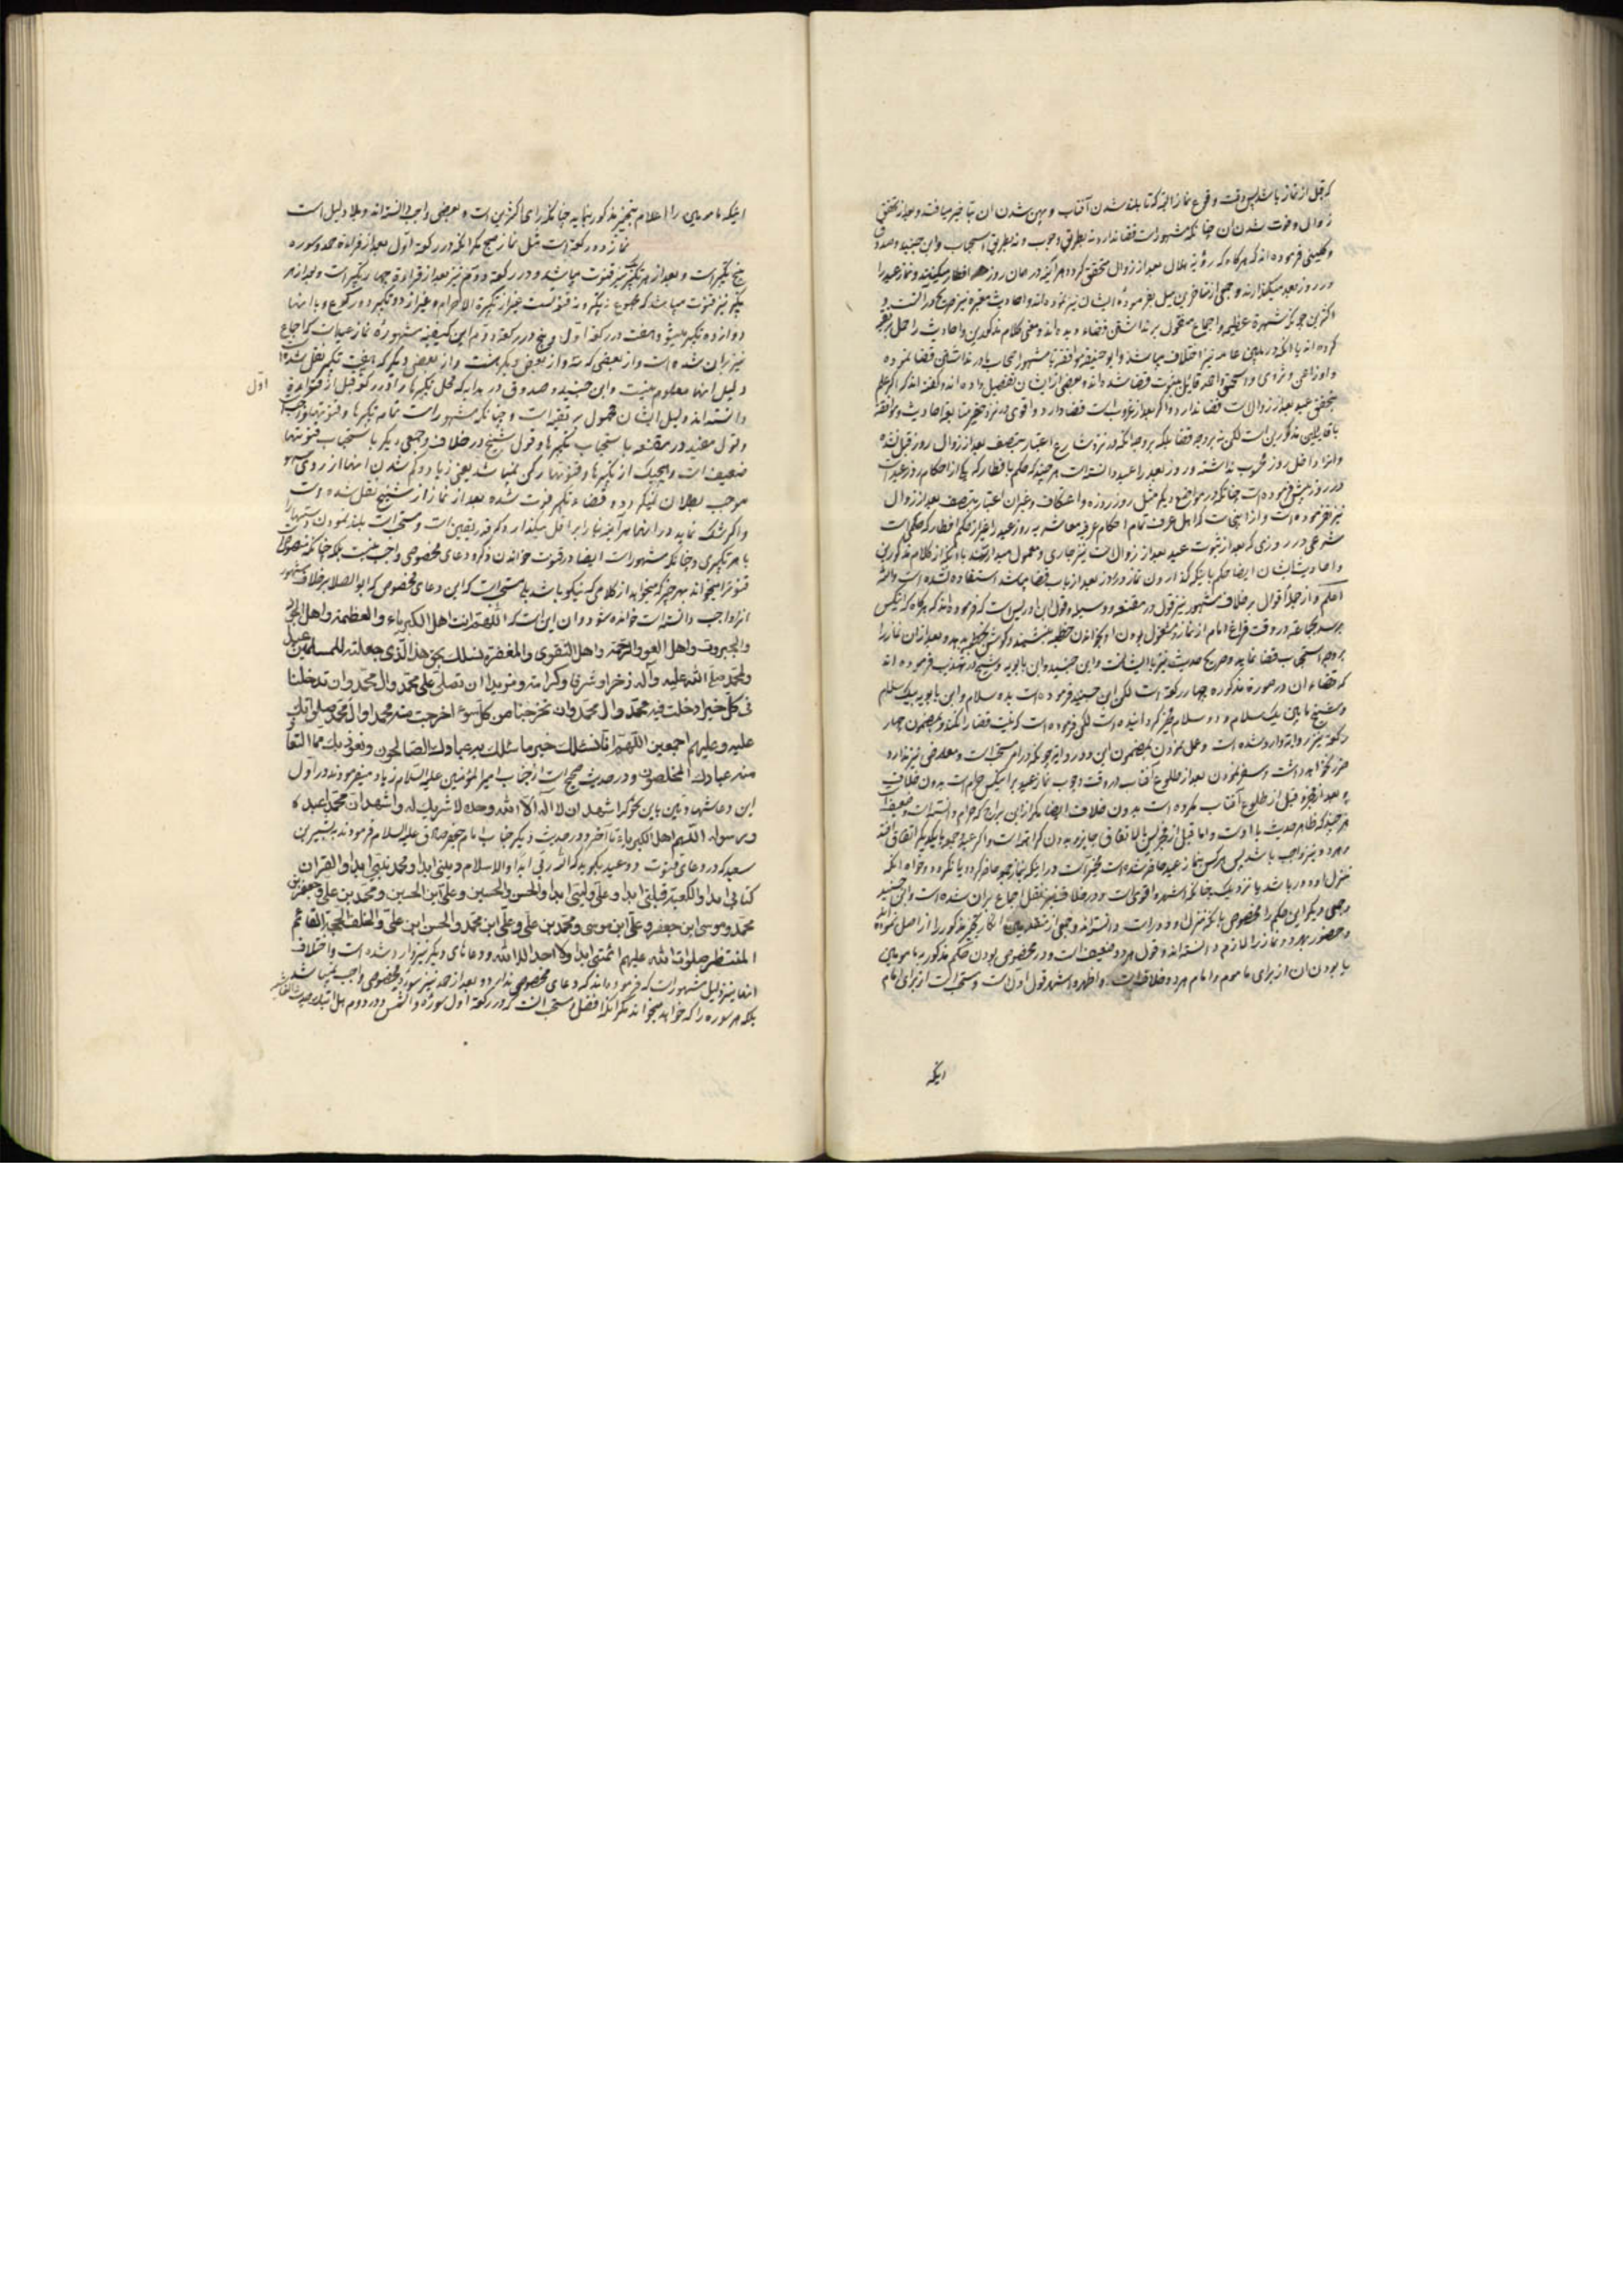 که قبل از نماز باشد پس وقت وقوع نماز البته که تا بلند شدن آفتاب و پهن شدن آن بتاخیر میافتد و بعد از تحقق
زوال و فوت شدن آن چنانکه مشهور است قضا ندارد نه بطریق وجوب و نه بطریق استحباب و ابن جنید و صدوق
و کلینی فرموده اند که هر گاه که رؤیة هلال بعد از زوال متحقق گردد هر آینه در همان روز افطار میکنند و نماز عید را
در روز بعد میگذارند و جمعی از متاخرین میل بفرموده ایشان نیز نموده اند و احادیث معتبره نیز صریح در آنست و
اکثرین چونکه شهرة عظیمه و اجماع منقول بر نداشتن قضاء دیده اند و معنی کلام مذکورین و احادیث را حمل بر تقیه
کرده اند با آنکه در مابین عامه نیز اختلاف میباشد و ابو حنیفه موافقة با مشهور اصحاب ما در نداشتن قضا نموده
و اوزاعی و ثوری و اسحق و احمد قایل بثبوت قضا شده اند و بعضی از ایشان تفصیل داده اند و گفته اند که اگر علم
بتحقق عید بعد از زوال است قضا ندارد و اگر بعد از غروبست قضا دارد و اقوی در نزد حقیر متابعة احادیث و موافقة
با قایلین مذکورین است لکن نه بر وجه قضا بلکه بر وجه آنکه در نزد شارع اعتبار بنصف بعد از زوال روز قبل نشده
و آنرا داخل روز محسوب نداشته و روز بعد را عید دانسته است هر چند که حکم بافطار که یکی از احکام روز عید است
در روز پیش فرموده است چنانکه در مواضع دیگر مثل روز روزه و اعتکاف و غیر آن اعتبار بنصف بعد از زوال
نیز نفرموده است و از اینجاست که اهل عرف تمام احکام عرفیه معاشیه روز عید را بغیر از حکم افطار که حکمی است
شرعی در روزی که بعد از ثبوت عید بعد از زوال است نیز جاری و معمول میدارند با آنکه از کلام مذکورین
و احادیث ایشان ایضا حکم باینکه گذاردن نماز در روز بعد از باب قضا میباشد استفاده نشده است و الله
اعلم و از جمله اقوال بر خلاف مشهور نیز قول در مقنعه و وسیله و قول ابن ادریس است که فرموده اند که هر گاه که اینکس
برسد بجماعة در وقت فراغ امام از نماز و مشغول بودن او بخواندن خطبه بنشیند و گوش بخطبه بدهد و بعد از آن نماز را
بر وجه استحباب قضا نماید و صریح حدیث نیز با ایشانست و ابن جنید و ابن بابویه و شیخ در تهذیب فرموده اند
که قضاء آن در صورة مذکوره چهار رکعة است لکن ابن جنید فرموده است بدو سلام و ابن بابویه بیک سلام
و شیخ مابین یک سلام و دو سلام مخیر گردانیده است لکن فرموده است که نیت قضا را نکند و بمضمون چهار
رکعة نیز روایة وارد شده است و عمل نمودن بمضمون این دو روایة چونکه در امر مستحب است و معارضی نیز ندارد
ضرر نخواهد داشت و سفر نمودن بعد از طلوع آفتاب در وقت وجوب نماز عید بر اینکس حرام است بدون خلاف
و بعد از فجر و قبل از طلوع آفتاب مکروه است بدون خلاف ایضا مگر از ابن براج که حرام دانسته است و ضعیف است
هر چند که ظاهر حدیث با اوست و اما قبل از فجر پس بالاتفاق جایز و بدون کراهة است و اگر عید و جمعه با یکدیگر اتفاق افتد
و هر دو نیز واجب باشد پس هر کس بنماز عید حاضر شده است مخیر است در اینکه بنماز جمعه حاضر گردد یا نگردد و خواه آنکه
منزل او دور باشد یا نزدیک چنانکه اشهر و اقوی است و در خلاف نیز نقل اجماع بر آن شده است و ابن جنید
و جمعی دیگر این حکم را مخصوص بآنکه منزل او دور است دانسته اند و جمعی از متقدمین انکار تخییر مذکور را از اصل نموده اند
و حضور بهر دو نماز را لازم دانسته اند و قول هر دو ضعیف است و در مخصوص بودن حکم مذکور بمامومین
یا بودن آن از برای ماموم و امام هر دو خلاف است و اظهر و اشهر قول اول است و مستحب است از برای امام
اینکه
اینکه مامومین را اعلام بتخییر مذکور بنماید چنانکه رای اکثرین است و بعضی واجب دانسته اند و بلا دلیل است
نماز دو رکعة است مثل نماز صبح مگر آنکه در رکعة اول بعد از قراءة حمد و سوره
پنج تکبیر است و بعد از هر تکبیر نیز قنوت میباشد و در رکعة دوم نیز بعد از قراءة چهار تکبیر است و بعد از هر
تکبیر نیز قنوت میباشد که مجموع نه تکبیر و نه قنوتست بغیر از تکبیرة الاحرام و غیر از دو تکبیر دو رکوع و با آنها
دوازده تکبیر میشود هفت در رکعة اول و پنج در رکعة دوم این کیفیة مشهوره نماز عید است که اجماع
نیز بر آن شده است و از بعضی که نه و از بعضی دیگر هشت و از بعضی دیگر که هفت تکبیر نقل شده است
دلیل آنها معلوم نیست و ابن جنید و صدوق در هدایه که محل تکبیرها را در رکعة قبل از قراءة
اول
دانسته اند دلیل ایشان محمول بر تقیه است و چنانکه مشهور است تمام تکبیرها و قنوتها واجبست
و قول مفید در مقنعه باستحباب تکبیرها و قول شیخ در خلاف و جمعی دیگر باستحباب قنوتها
ضعیف است و هیچیک از تکبیرها و قنوتها رکن نمیباشد یعنی زیاد و کم شدن آنها از روی سهو
موجب بطلان نمیگردد و قضاء تکبیر فوت شده بعد از نماز از شیخ نقل شده است
و اگر شک نماید در آنها هر آینه بنا را بر اقل میگذارد که قدر یقین است و مستحب است بلند نمودن دستها را
با هر تکبیری و چنانکه مشهور است ایضا در قنوت خواندن ذکر و دعای مخصوصی واجب نیست بلکه چنانکه منصوص است
قنوت را میخواند بهر چیز که میخواهد از کلامی که نیکو باشد بلی مستحب است که این دعای مخصوص که ابو الصلاح بر خلاف مشهور
آنرا واجب دانسته است خوانده شود و آن این است که اللهم انت اهل الکبریاء و العظمة و اهل الجود
والجبروت واهل العفو والرحمة واهل التقوى والمغفرة نسئلك بحق هذا الذى جعلته للمسلمين عيدا
ولمحمد صلى الله عليه وآله ذخرا وشرفا وكرامة ومزيدا ان تصلى على محمد وال محمد وان تدخلنا
فى كل خير ادخلت فيه محمد وال محمد وان تخرجنا من كل سوء اخرجت منه محمدا وال محمد صلواتك
عليه وعليهم اجمعين اللهم انا نسئلك خير ما سئلك به عبادك الصالحون ونعوذ بك مما استعاذ
منه عبادك المخلصون و در حدیث صحیح است که جناب امیر المؤمنین علیه السلام زیاد میفرمودند در اول
این دعا شهادتین باین نحو که اشهد ان لا اله الا الله وحده لا شريك له واشهد ان محمدا عبده
ورسوله اللهم اهل الكبرياء تا آخر و در حدیث دیگر جناب امام جعفر صادق علیه السلام فرمودند به بشیر بن
سعید که در دعای قنوت دو عید بگوید که الله ربى ابدا والاسلام دينى ابدا ومحمد نبيى ابدا والقران
كتابى ابدا والكعبة قبلتى ابدا وعلى وليى ابدا والحسن والحسين وعلى ابن الحسين ومحمد بن على وجعفر بن
محمد وموسى ابن جعفر وعلى ابن موسى ومحمد بن على وعلى ابن محمد والحسن ابن على والخلف الحجة القائم
المنتظر صلوات الله عليهم ائمتى ابدا ولا احد الا الله و دعاهای دیگر نیز وارد شده است و اختلاف
آنها نیز دلیل مشهور است که فرموده اند که دعای مخصوصی ندارد و بعد از حمد نیز سوره مخصوصی واجب نمیباشد
بلکه هر سوره را که خواهد میخواند مگر آنکه افضل و مستحب آنست که در رکعة اول سوره والشمس و در دوم هل اتیک حدیث الغاشیه